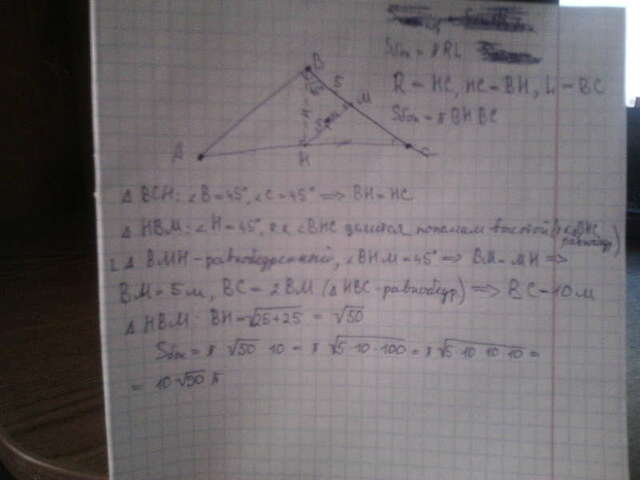 Sбок = πRL
R = HC, HC = BH, L = BC
Sбок = π BH BC
B
5
M
A
H
C
Δ BCH: ∠B = 45°, ∠C = 45° ⟹ BH = HC
Δ HBM: ∠H = 45°, т.к ∠BHC делится пополам высотой
Δ BMH - равнобедренный, ∠BHM = 45° ⟹ BM = MH ⟹
BM = 5 м, BC = 2BM (Δ HBC - равнобедр) ⟹ BC = 10 м
Δ HBM: BH = √25+25 = √50
Sбок = π √50 · 10 = π √5 · 10 · 100 = π √5 · 10 · 10 · 10 =
= 10 √50 π